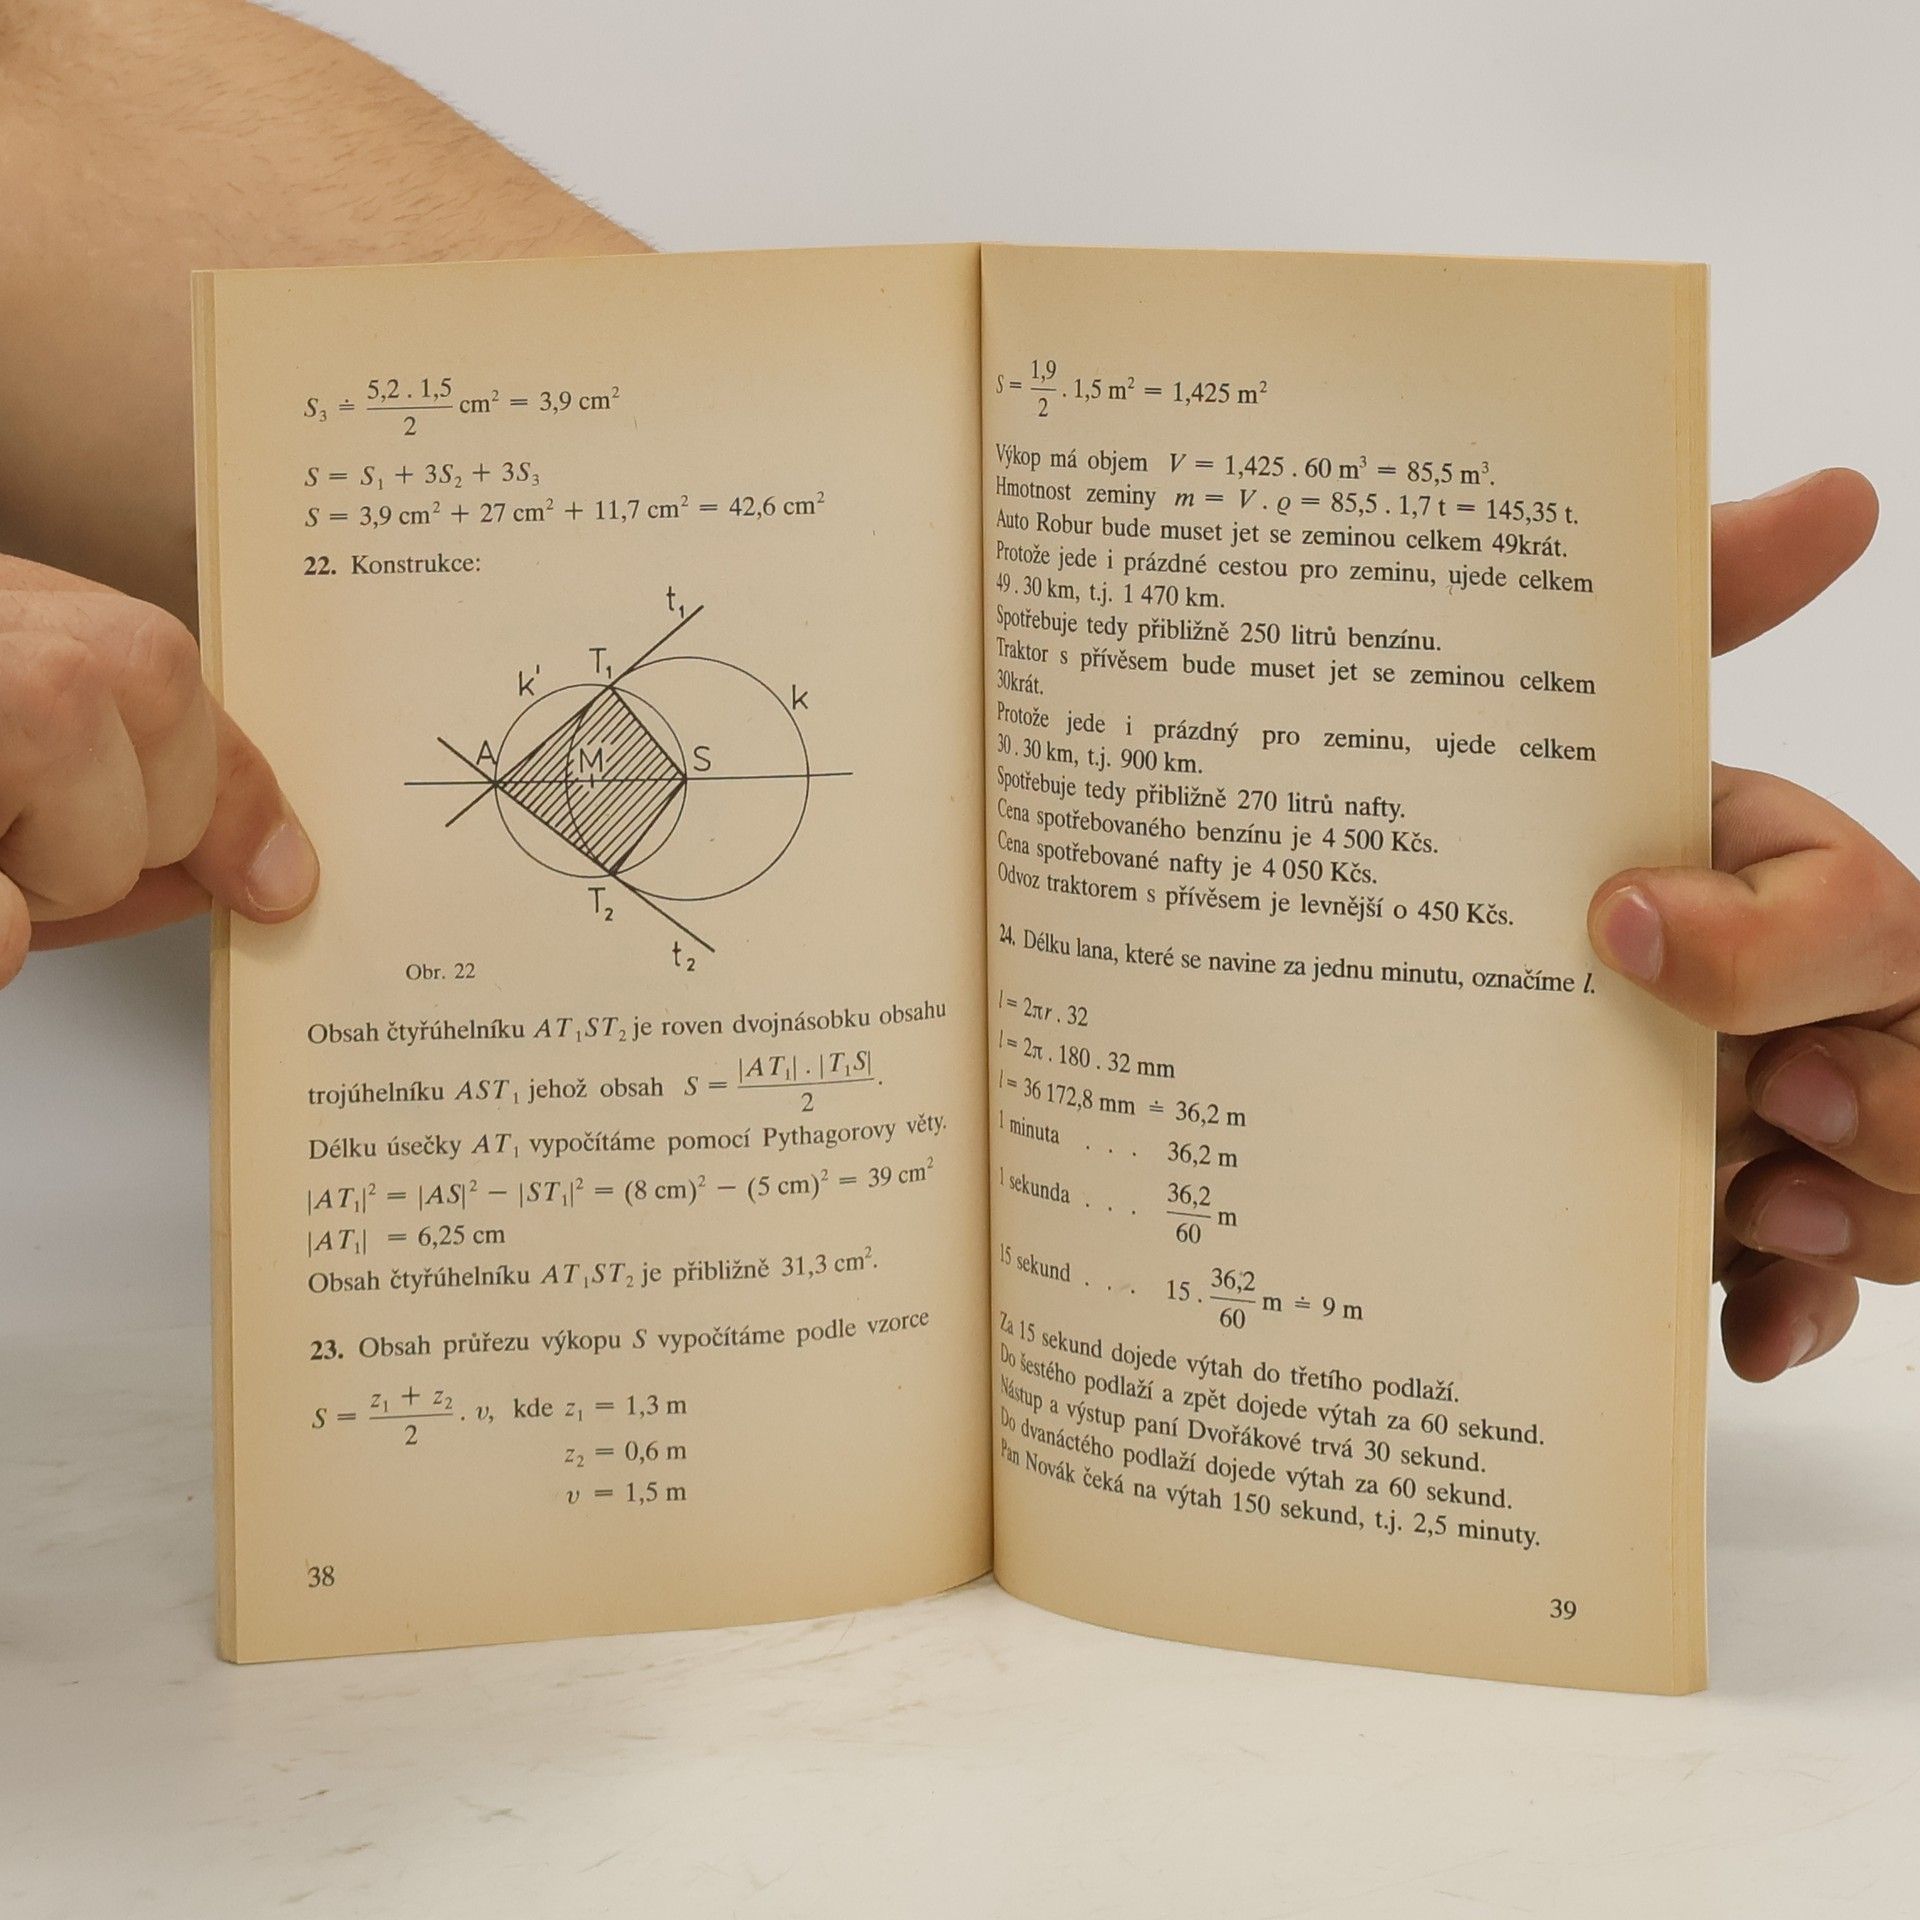 S₃ ≐ 5,2 . 1,5 / 2 cm² = 3,9 cm²
S = S₁ + 3S₂ + 3S₃
S = 3,9 cm² + 27 cm² + 11,7 cm² = 42,6 cm²
22. Konstrukce:
t₁
T₁
k'
k
A
M
S
T₂
t₂
Obr. 22
Obsah čtyřúhelníku AT₁ST₂ je roven dvojnásobku obsahu
trojúhelníku AST₁ jehož obsah S = |AT₁| . |T₁S| / 2 .
Délku úsečky AT₁ vypočítáme pomocí Pythagorovy věty.
|AT₁|² = |AS|² − |ST₁|² = (8 cm)² − (5 cm)² = 39 cm²
|AT₁| = 6,25 cm
Obsah čtyřúhelníku AT₁ST₂ je přibližně 31,3 cm².
23. Obsah průřezu výkopu S vypočítáme podle vzorce
S = z₁ + z₂ / 2 . v, kde z₁ = 1,3 m
z₂ = 0,6 m
v = 1,5 m
38
S = 1,9 / 2 . 1,5 m² = 1,425 m²
Výkop má objem V = 1,425 . 60 m³ = 85,5 m³.
Hmotnost zeminy m = V . ϱ = 85,5 . 1,7 t = 145,35 t.
Auto Robur bude muset jet se zeminou celkem 49krát.
Protože jede i prázdné cestou pro zeminu, ujede celkem
49 . 30 km, t.j. 1 470 km.
Spotřebuje tedy přibližně 250 litrů benzínu.
Traktor s přívěsem bude muset jet se zeminou celkem
30krát.
Protože jede i prázdný pro zeminu, ujede celkem
30 . 30 km, t.j. 900 km.
Spotřebuje tedy přibližně 270 litrů nafty.
Cena spotřebovaného benzínu je 4 500 Kčs.
Cena spotřebované nafty je 4 050 Kčs.
Odvoz traktorem s přívěsem je levnější o 450 Kčs.
24. Délku lana, které se navine za jednu minutu, označíme l.
l = 2πr . 32
l = 2π . 180 . 32 mm
l = 36 172,8 mm ≐ 36,2 m
1 minuta . . . 36,2 m
1 sekunda . . . 36,2 / 60 m
15 sekund . . . 15 . 36,2 / 60 m ≐ 9 m
Za 15 sekund dojede výtah do třetího podlaží.
Do šestého podlaží a zpět dojede výtah za 60 sekund.
Nástup a výstup paní Dvořákové trvá 30 sekund.
Do dvanáctého podlaží dojede výtah za 60 sekund.
Pan Novák čeká na výtah 150 sekund, t.j. 2,5 minuty.
39